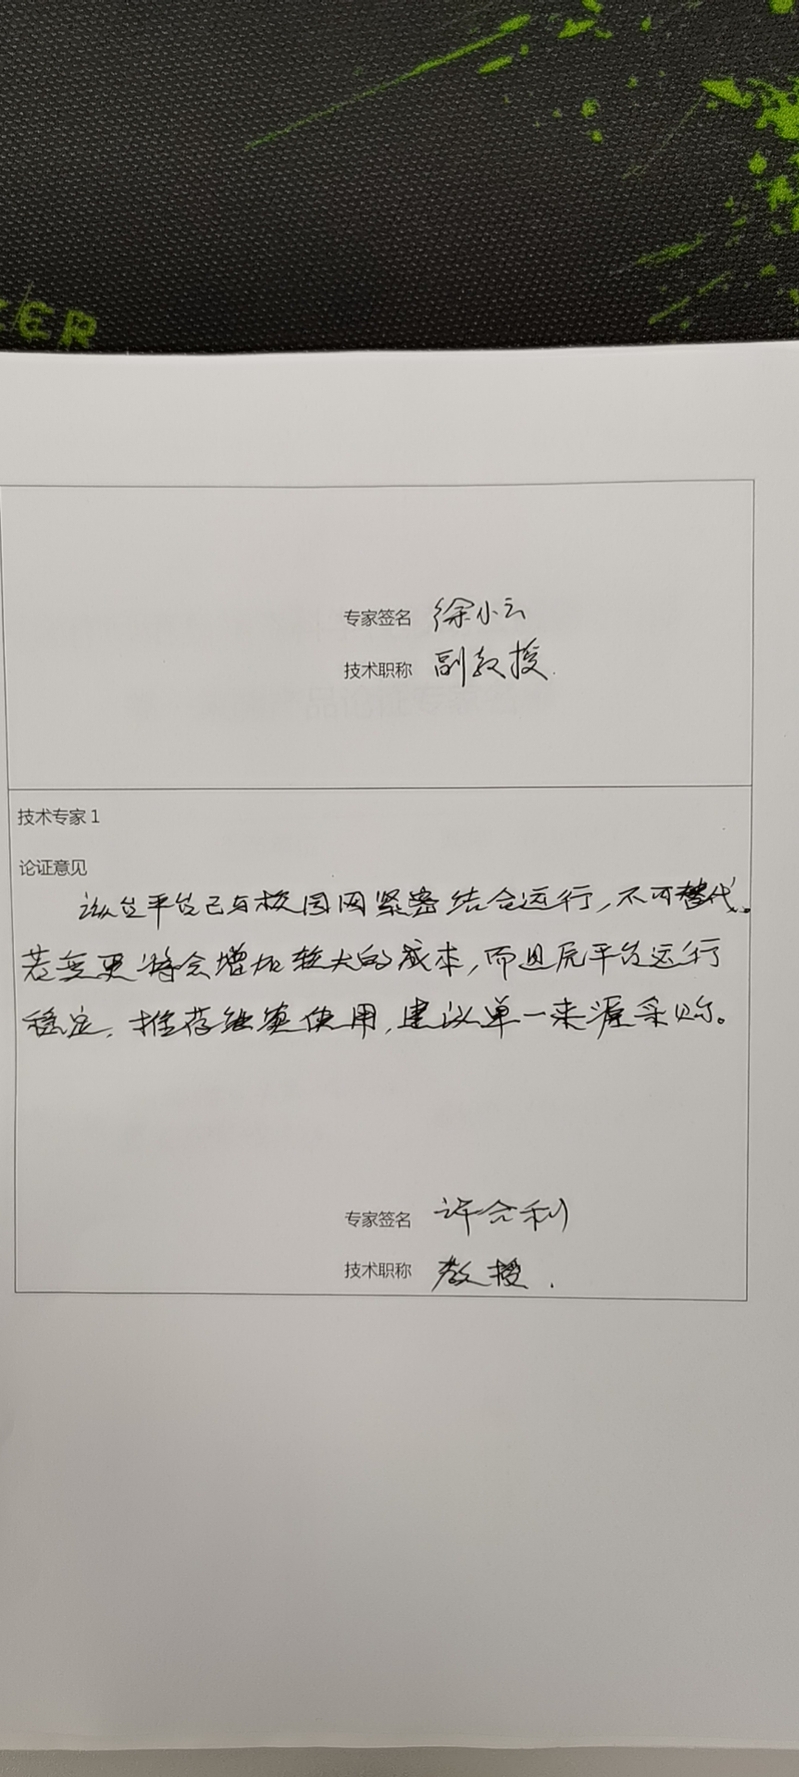 ER
专家签名 徐小云
技术职称 副教授.
技术专家 1
论证意见
该平台已与校园网紧密结合运行,不可替代。
若变更将会增加较大的成本,而且原平台运行
稳定,推荐继续使用,建议单一来源采购。
专家签名 许合利
技术职称 教授.